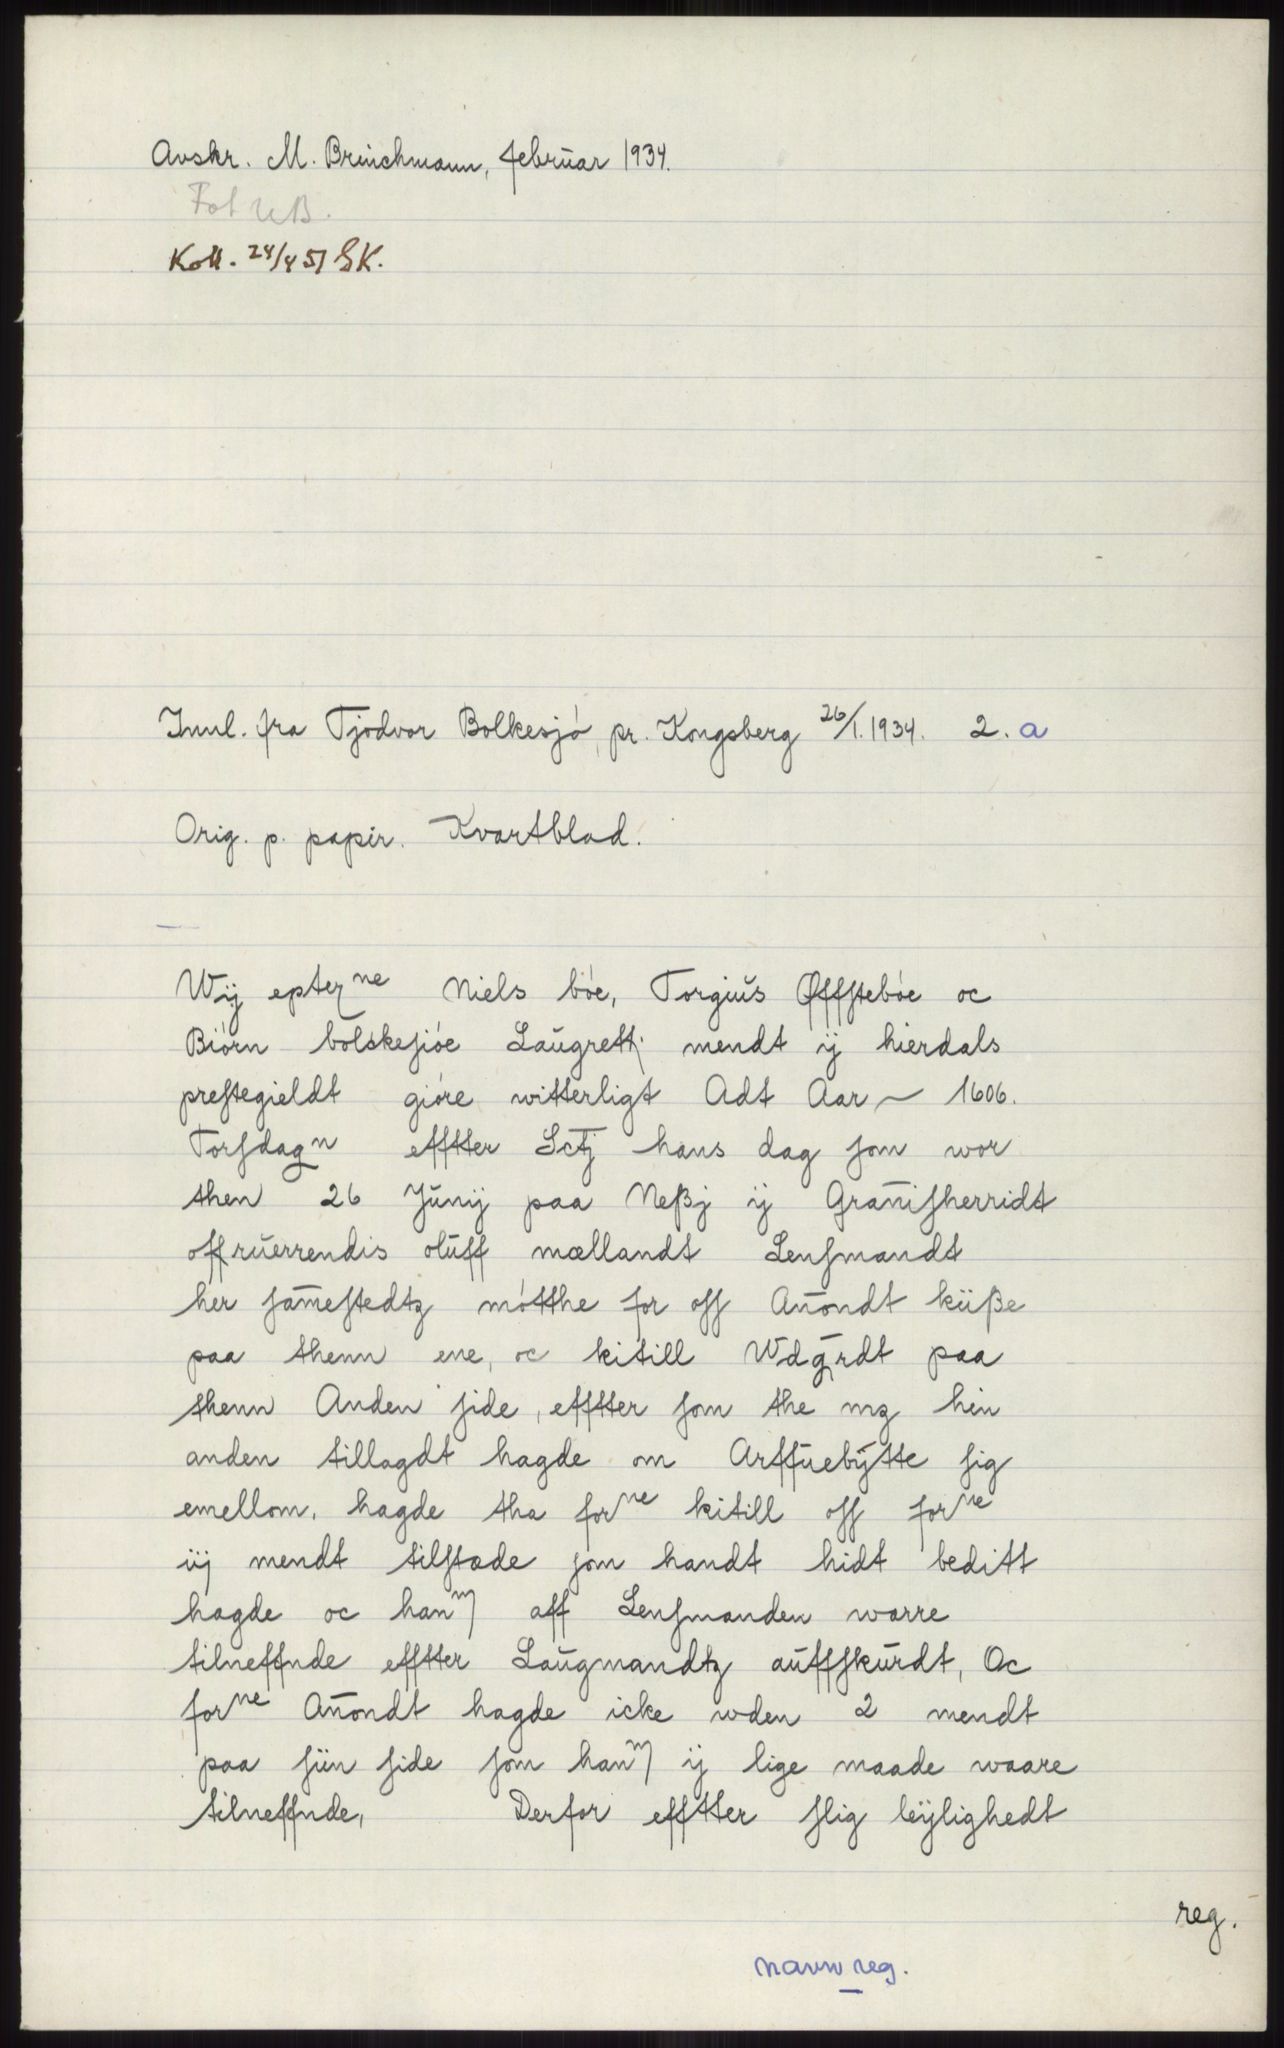 Avskr. M. Brinchmann, februar 1934.
Fot UB.
Koll. 24/4 51 SK.
Innl. fra Tjodvor Bolkesjó, pr. Kongsberg 26/1. 1934. 2. a
Orig. p. papir. Kvartblad.
Wÿ epterne Niels bóe, Torgiŭs Øffstebóe oc
Biórn bolskesióe Laŭgrettj mendt ÿ hierdals
prestegieldt gióre witterligt Adt Aar ~ 1606.
Torsdagn effter Sctj hans dag som wor
then 26 Jŭnÿ paa Neßj ÿ Grañisherridt
offrŭerrendis olŭff mællandt Lensmandt
her sam̄estedtz mótthe for oss Añondt kŭße
paa thenn ene, oc kitill Wdḡrdt paa
thenn Anden side, effter som the mz hin
anden tillagdt hagde om Arffŭebÿtte sig
emellom, hagde tha forne kitill oss forne
iij mendt tilstæde som handt hidt beditt
hagde oc hanm aff Lensmanden warre
tilneffnde effter Laŭgmandtz aŭffskŭrdt, Oc
forne Añondt hagde icke wden 2 mendt
paa siin side som hanm ÿ lige maade waare
tilneffnde, Derfor effter slig leÿlighedt
reg.
navn reg.